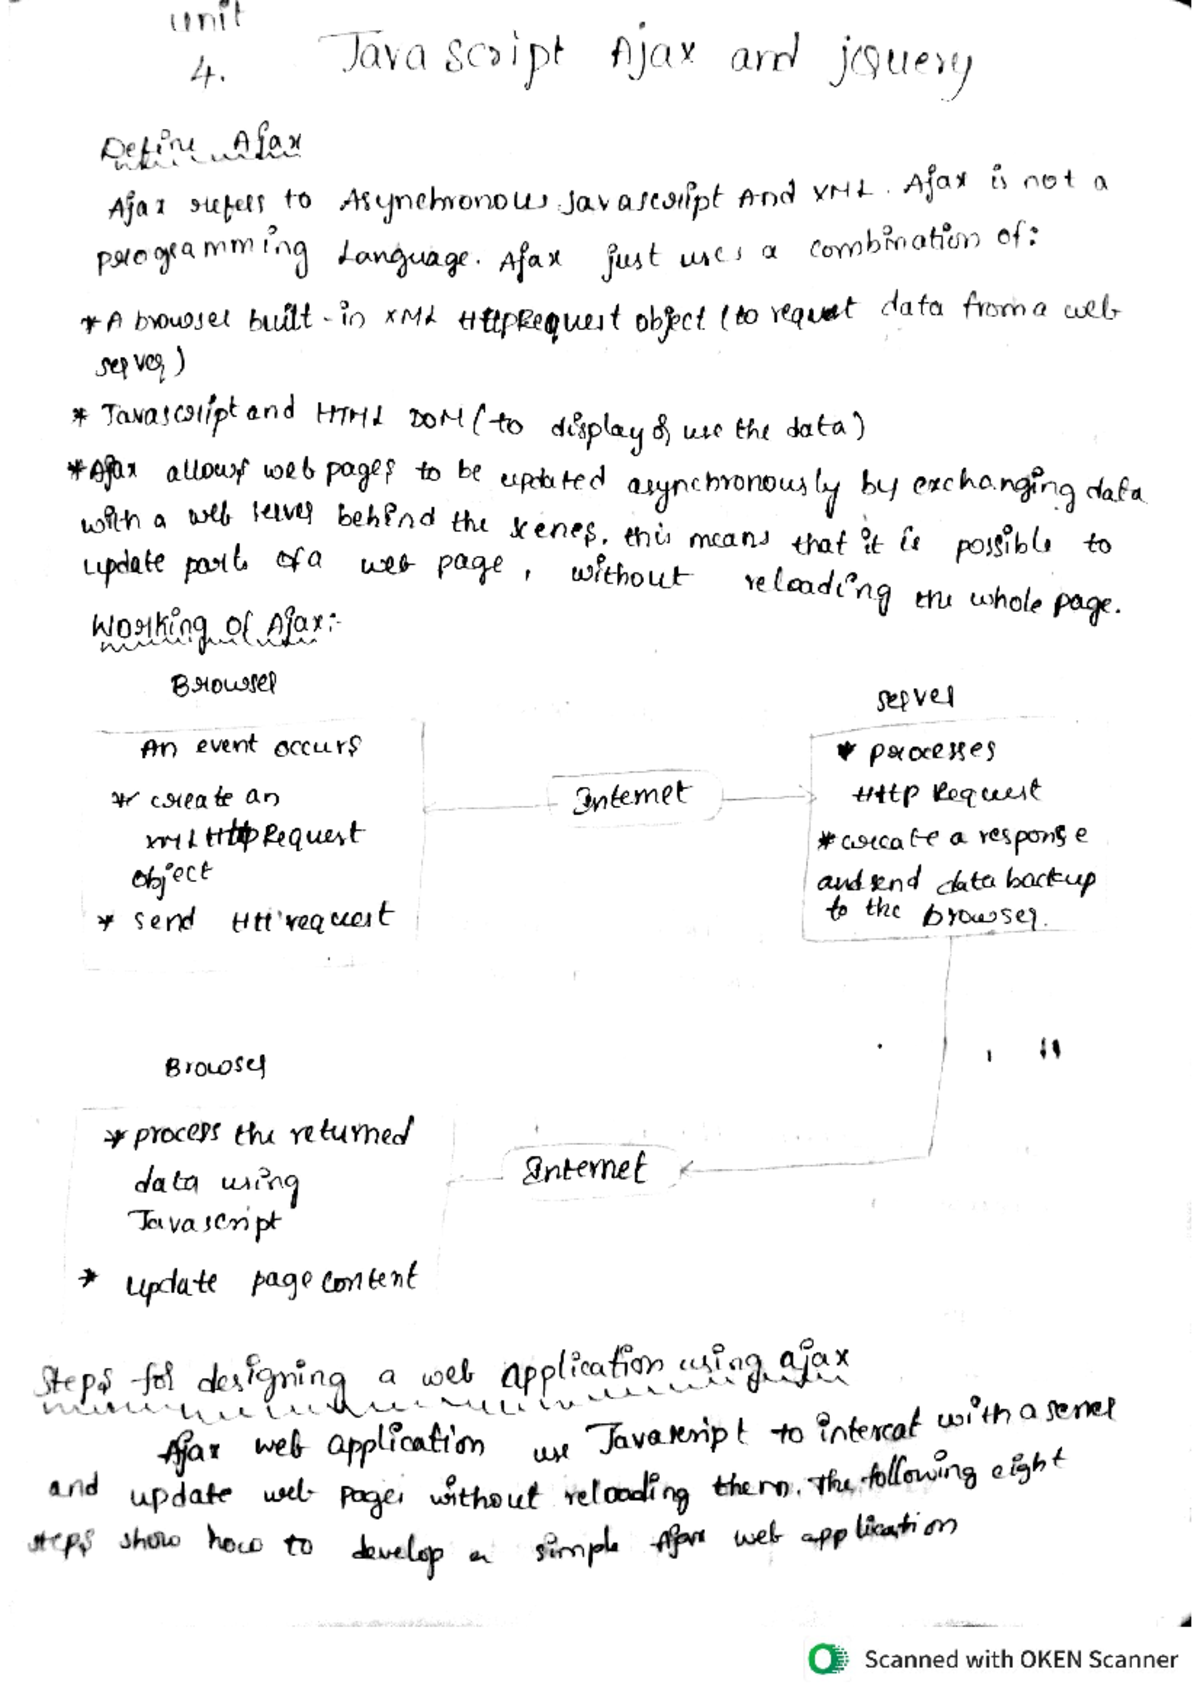 unit
4.
Javascript Ajax and jQuery
Define Ajax
Ajax refers to Asynchronous Javascript And XML. Ajax is not a
programming Language. Ajax just uses a combination of:
* A browser built-in XML HttpRequest object (to request data from a web
server)
* Javascript and HTML DOM (to display & use the data)
* Ajax allows web pages to be updated asynchronously by exchanging data
with a web server behind the scenes. this means that it is possible to
update parts of a web page, without reloading the whole page.
Working of Ajax:-
Browser
An event occurs
* create an
XML HttpRequest
object
* send Htt request
Internet
server
* processes
Http Request
* create a response
and send data backup
to the browser.
Browser
* process the returned
data using
Javascript
* update page content
Internet
Steps for designing a web application using ajax
Ajax web application use Javascript to intercat with a server
and update web pages without reloading them. The following eight
steps show how to develop a simple Ajax web application
Scanned with OKEN Scanner